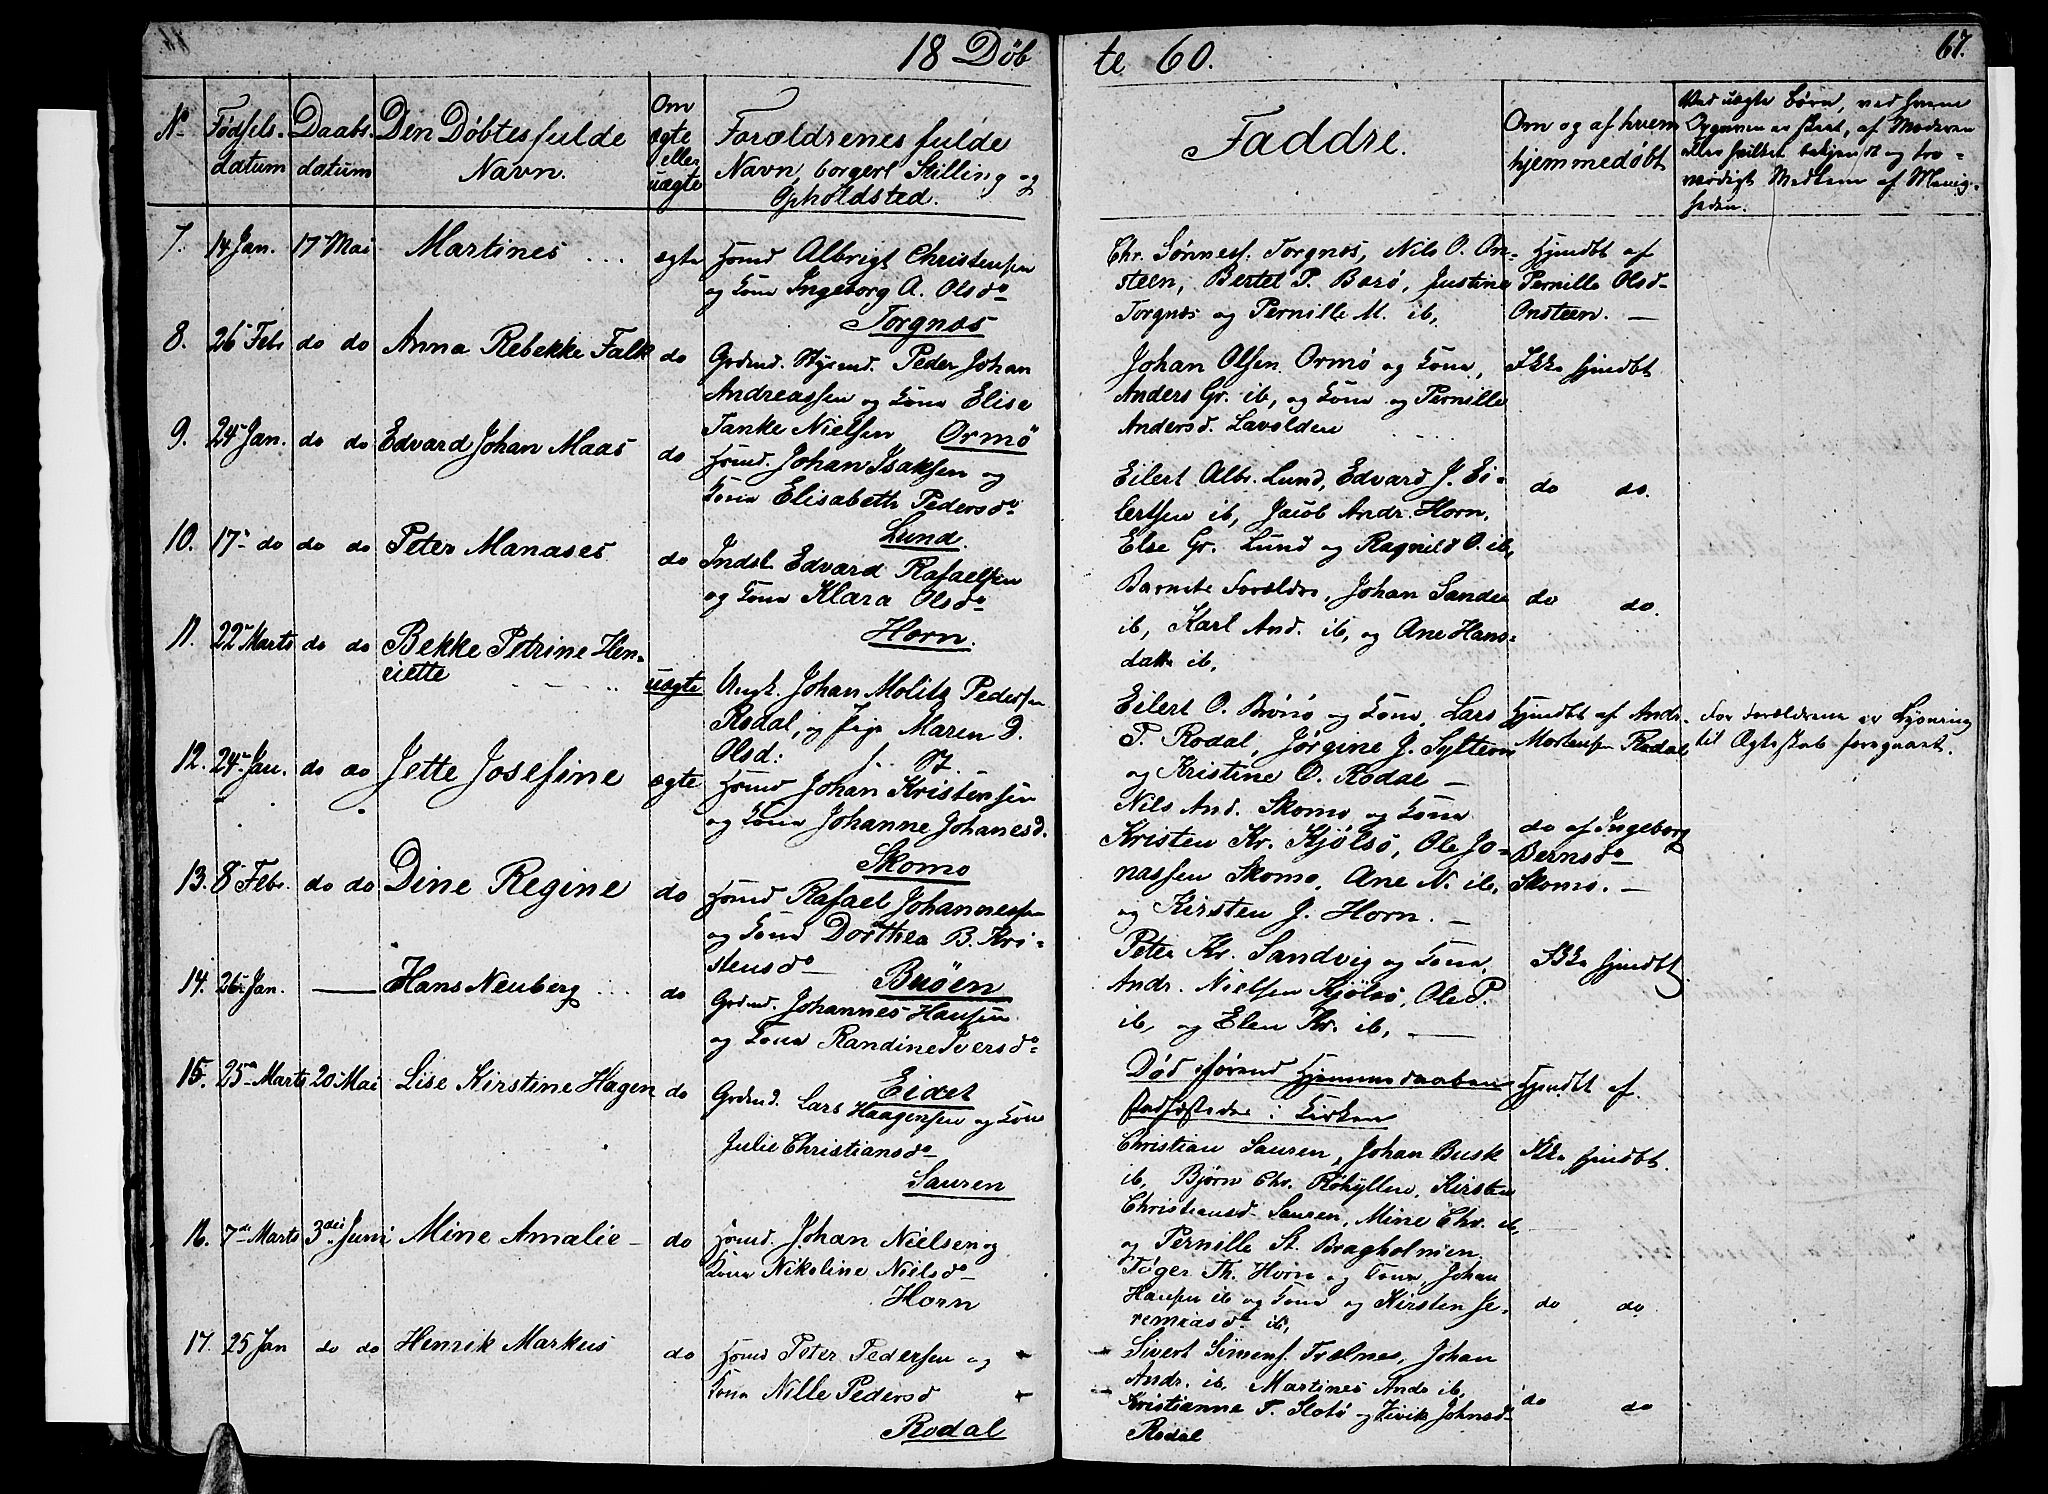 18 Døb
te 60.
67.
No
Fødsels-
datum
Daabs-
datum
Den Døbtes fulde
Navn.
Om
ægte
eller
uægte
Forældrenes fulde
Navn, borgerl Stilling og
Opholdsted.
Faddre.
Om og af hvem
hjemmedøbt
Ved uægte Børn, ved hvem
Opgaven er skeet, af Moderen
eller hvilket bekjendt og tro-
værdigt Medlem af Menig-
heden.
7. 14 Jan. 17 Mai Martines ... ægte Huusmd Albrigt Christensen
og Kone Ingeborg A. Olsdr
Torgnæs
Chr. Sørness. Torgnæs, Nils O. On-
steen, Bertel P. Barø, Justine
Torgnæs og Pernille M. ib,
Hjmdbt af
Pernille Olsd-
Onsteen. —
8. 26 Febr do do Anna Rebekke Falk do Grdmd. Peder Johan
Andreassen og Kone Elise
Tanke Nielsen Ormø
Johan Olsen Ormø og Kone,
Anders Gr. ib, og Kone og Pernille
Andersd. Lavolden
Ikke hjmdbt
9. 24 Jan. do do Edvard Johan Maas do Huusmd. Johan Isaksen og
Kone Elisabeth Pedersdr
Lund.
Eilert Albr. Lund, Edvard J. Ei-
lertsen ib, Jacob Andr. Horn,
Else Gr. Lund og Ragnild O. ib,
do do.
10. 17 do do do Peter Manases do Indst Edvard Rafaelsen
og Kone Klara Olsdr
Horn.
Barnets Forældre, Johan Sander
ib, Karl And. ib, og Ane Hans-
datter ib,
do do.
11. 22 Marts do do Bekke Petrine Hen-
riette uægte Ungk. Johan Molitz Pedersen
Rodal, og Pige Maren D.
Olsd: st
Eilert O. Brønø og Kone, Lars
P. Rodal, Jørgine J. Sylteren
og Kristine O. Rodal —
Hjmdbt af Andr.
Mortensen Rodal
For Forældrene er Lysning
til Ægteskab foregaaet.
12. 24 Jan. do do Jette Josefine ægte Huusmd Johan Kristensen
og Kone Johanne Johanesd.
Skomo
Nils And. Skomo og Kone
Kristen Kr. Kjølsø, Ole Jo-
nassen Skomo, Ane N. ib,
og Kirsten J. Horn. —
do af Ingeborg
Bernsdr
Skomo. —
13. 8 Febr. do do Dine Regine do Huusmd Rafael Johannessen
og Kone Dorthea B. Kri-
stensdr Buøen
Peter Kr. Sandvig og Kone,
Andr. Nielsen Kjølsø, Ole P.
ib, og Elen Kr. ib, —
Ikke hjmdbt
14. 26 Jan. — Hans Neuberg ... do Grdmd. Johannes Hansen
og Kone Randine Iversdr
Eidet
Død førend Hjemmedaaben
stadfæstedes i Kirken
Hjmdbt af
15. 25 Marts 20 Mai Lise Kirstine Hagen do Grdmd. Lars Haagensen og Kone
Julie Christiansdr
Sauren
Christian Sauren, Johan Busk
ib, Bjørn Chr. Røhyllen, Kirsten
Christiansd. Sauren, Mine Chr. ib,
og Pernille St. Bragholmen
Ikke hjmdbt.
16. 7de Marts 3die Juni Mine Amalie — do Huusmd. Johan Nielsen og
Kone Nikoline Nielsdr
Horn
Tøger Th. Horn og Kone, Johan
Hansen ib og Kone og Kirsten Je-
remiasdr ib,
do do
17. 25 Jan do do Henrik Markus do Huusmd Peter Pedersen og
Kone Nille Pedersd
Rodal
Sivert Simens. Trælnes, Johan
Andr. ib, Martines Andr ib,
Kristianne T. Slotø og Johnsd
Rodal
do do